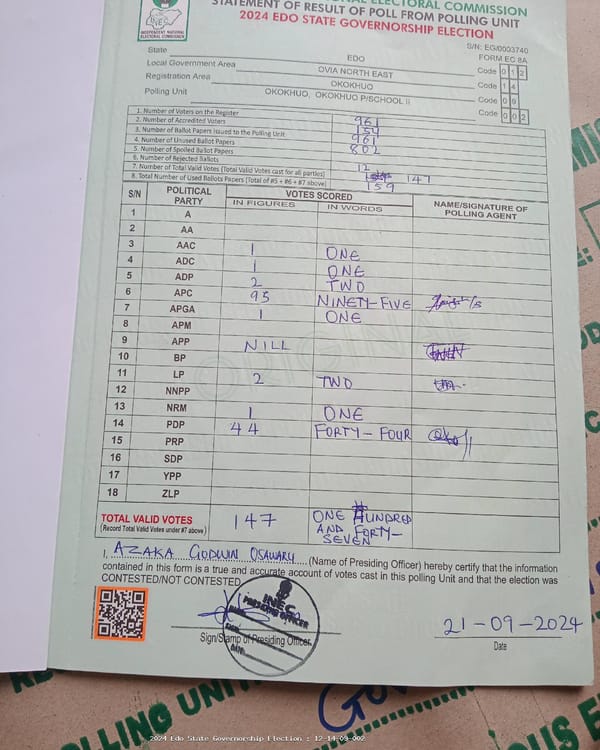 INEC
INDEPENDENT NATIONAL
ELECTORAL COMMISSION
ELECTORAL COMMISSION
STATEMENT OF RESULT OF POLL FROM POLLING UNIT
2024 EDO STATE GOVERNORSHIP ELECTION
S/N: EG/0003740
FORM EC 8A
State EDO
Local Government Area OVIA NORTH EAST Code 0 1 2
Registration Area OKOKHUO Code 1 4
Polling Unit OKOKHUO, OKOKHUO P/SCHOOL II Code 0 9
Code 0 0 2
1. Number of Voters on the Register 961
2. Number of Accredited Voters 159
3. Number of Ballot Papers Issued to the Polling Unit 961
4. Number of Unused Ballot Papers 802
5. Number of Spoiled Ballot Papers
6. Number of Rejected Ballots 12
7. Number of Total Valid Votes (Total Valid Votes cast for all parties) 147
8. Total Number of Used Ballots Papers (Total of #5 + #6 + #7 above) 159
S/N POLITICAL PARTY VOTES SCORED NAME/SIGNATURE OF POLLING AGENT
IN FIGURES IN WORDS
1 A
2 AA
3 AAC 1 ONE
4 ADC 1 ONE
5 ADP 2 TWO
6 APC 95 NINETY-FIVE
7 APGA 1 ONE
8 APM
9 APP NILL
10 BP
11 LP 2 TWO
12 NNPP
13 NRM 1 ONE
14 PDP 44 FORTY-FOUR
15 PRP
16 SDP
17 YPP
18 ZLP
ORIGINAL
TOTAL VALID VOTES 147 ONE HUNDRED
(Record Total Valid Votes under #7 above) AND FORTY-
SEVEN
I, AZAKA GODWIN OSAWARU (Name of Presiding Officer) hereby certify that the information
contained in this form is a true and accurate account of votes cast in this polling Unit and that the election was
CONTESTED/NOT CONTESTED
INEC
PRESIDING OFFICER
SIGN
DATE
Sign/Stamp of Presiding Officer
21-09-2024
Date
2024 Edo State Governorship Election : 12-14-09-002